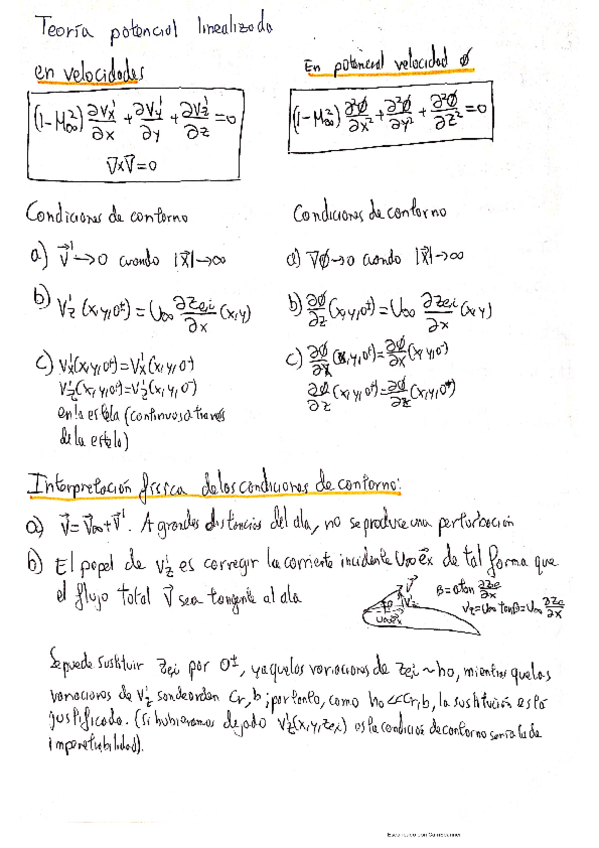 Teoría potencial linealizada
en velocidades
(1-M∞²) ∂Vx'/∂x + ∂Vy'/∂y + ∂Vz'/∂z = 0
∇×V̄ = 0
En potencial velocidad ø
(1-M∞²) ∂²Ø/∂x² + ∂²Ø/∂y² + ∂²Ø/∂z² = 0
Condiciones de contorno
a) V⃗' → 0 cuando |X⃗| → ∞
b) Vz'(x,y,0±) = U∞ ∂Ze,i/∂x (x,y)
c) Vx'(x,y,0+) = Vx'(x,y,0-)
Vz'(x,y,0+) = Vz'(x,y,0-)
en la estela (continuos a traves
de la estela)
Condiciones de contorno
a) ∇Ø → 0 cuando |X⃗| → ∞
b) ∂Ø/∂z (x,y,0±) = U∞ ∂Ze,i/∂x (x,y)
c) ∂Ø/∂x (x,y,0+) = ∂Ø/∂x (x,y,0-)
∂Ø/∂z (x,y,0+) = ∂Ø/∂z (x,y,0+)
Interpretación física de las condiciones de contorno:
a) V⃗ = V⃗∞ + V⃗'. A grandes distancias del ala, no se produce una perturbación
b) El papel de Vz' es corregir la corriente incidente U∞ e⃗x de tal forma que
el flujo total V⃗ sea tangente al ala
V⃗
Vz'
β
U∞ e⃗x
β = atan ∂Ze/∂x
Vz = U∞ tanβ = U∞ ∂Ze/∂x
Se puede sustituir Ze,i por 0±, ya que las variaciones de Ze,i ~ h0, mientras que las
variaciones de Vz' son de orden Cr, b; por tanto, como h0 << Cr, b, la sustitución está
justificada. (Si hubieramos dejado Vz'(x,y,Ze,i) es la condición de contorno sería la de
impermeabilidad).